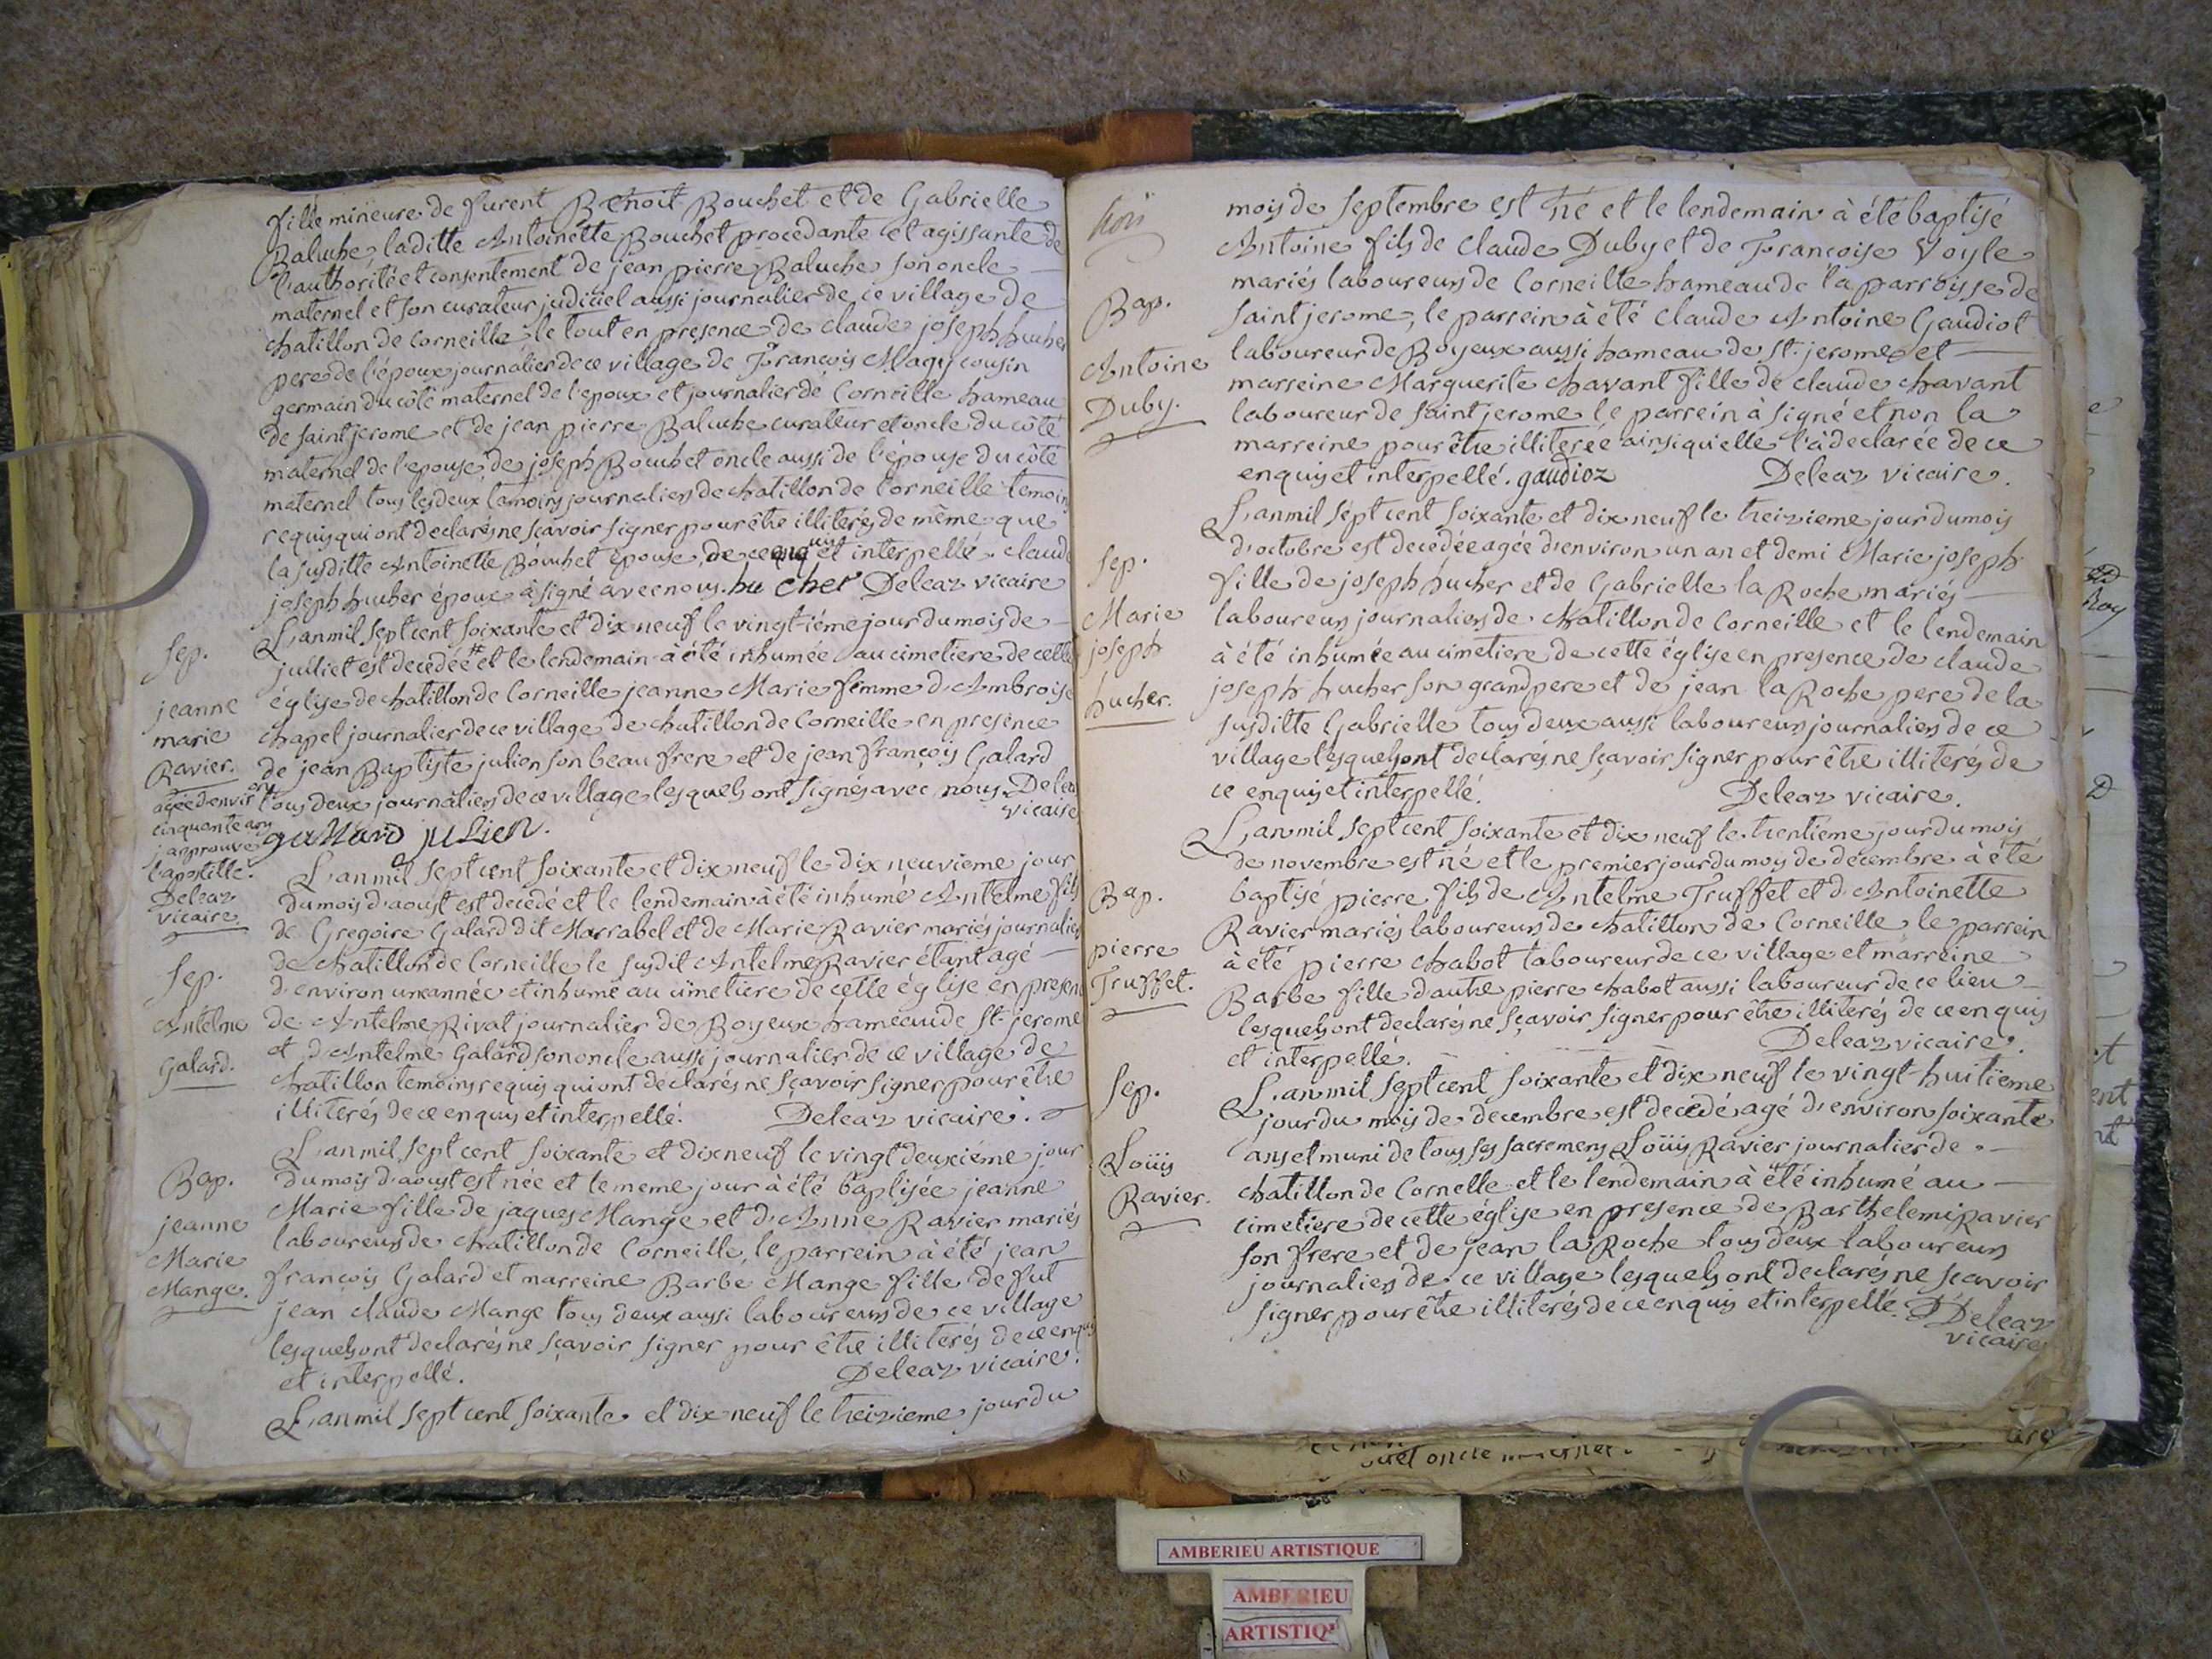 fille mineure de furent Benoit Bouchet et de Gabrielle
Baluche, laditte Antoinette Bouchet procedante et agissante de
l'authorité et consentement de jean pierre Baluche son oncle
maternel et son curateur judiciel aussi journalier de ce village de
chatillon de Corneille le tout en presence de claude joseph hucher
pere de l'époux journalier de ce village de François Magy cousin
germain du côté maternel de l'epoux et journalier de Corneille hameau
de saint jerome et de jean pierre Baluche curateur et oncle du côté
maternel de l'epouse, de joseph Bouchet oncle aussi de l'épouse du côté
maternel tous les deux journaliers de chatillon de Corneille temoins
requis qui ont declarés ne sçavoir signer pour être illiterés de même que
la susditte Antoinette Bouchet epouse, de ce enquis et interpellé. claude
joseph hucher époux à signé avec nous. hu cher Deleaz vicaire
Sep.
jeanne
marie
Ravier.
agée d'environ
cinquante ans
j'approuve
l'apostille.
Deleaz
vicaire.
L'an mil sept cent soixante et dix neuf le vingt-iéme jour du mois de
julliet est decedée # et le lendemain à été inhumée au cimetiere de cette
église de chatillon de Corneille jeanne Marie femme d'Ambroise
chapel journalier de ce village de chatillon de Corneille en presence
de jean Baptiste julien son beau frere et de jean françois Galard
tous deux journaliers de ce village lesquels ont signés avec nous. Deleaz
vicaire
gallard julien.
Sep.
Antelme
Galard.
L'an mil sept cent soixante et dix neuf le dix neuvieme jour
du mois d'aoust est decedé et le lendemain à été inhumé Antelme fils
de Gregoire Galard dit Marrabel et de Marie Ravier mariés journaliers
de chatillon de Corneille le susdit Antelme Ravier étant agé
d'environ une année et inhumé au cimetiere de cette église en presence
de Antelme Rivat journalier de Boyeux hameau de st. jerome
et d'Antelme Galard son oncle aussi journalier de ce village de
chatillon temoins requis qui ont declarés ne sçavoir signer pour être
illiterés de ce enquis et interpellé. Deleaz vicaire.
Bap.
jeanne
Marie
Mange.
L'an mil sept cent soixante et dix neuf le vingt deuxiéme jour
du mois d'aoust est née et le meme jour à été baptisée jeanne
Marie fille de jaques Mange et d'Anne Ravier mariés
laboureurs de chatillon de Corneille, le parrein à été jean
françois Galard et marreine Barbe Mange fille de fut
jean claude Mange tous deux aussi laboureurs de ce village
lesquels ont declarés ne sçavoir signer pour être illiterés de ce enquis
et interpellé. Deleaz vicaire.
L'an mil sept cent soixante et dix neuf le treizieme jour du
Bap.
Antoine
Duby.
mois de septembre est né et le lendemain à été baptisé
Antoine fils de claude Duby et de Françoise Voyle
mariés laboureurs de Corneille hameau de la parroisse de
saint jerome, le parrein à été claude Antoine Gaudiot
laboureur de Boyeux aussi hameau de st. jerome et
marreine Marguerite chavant fille de claude chavant
laboureur de saint jerome le parrein à signé et non la
marreine pour être illiterée ainsi qu'elle l'à declarée de ce
enquis et interpellé. gaudioz Deleaz vicaire.
Sep.
Marie
joseph
hucher.
L'an mil sept cent soixante et dix neuf le treizieme jour du mois
d'octobre est decedée agée d'environ un an et demi Marie joseph
fille de joseph hucher et de Gabrielle la Roche mariés
laboureurs journaliers de chatillon de Corneille et le lendemain
à été inhumée au cimetiere de cette église en presence de claude
joseph hucher son grand pere et de jean la Roche pere de la
susditte Gabrielle tous deux aussi laboureurs journaliers de ce
village lesquels ont declarés ne sçavoir signer pour être illiterés de
ce enquis et interpellé. Deleaz vicaire.
Bap.
pierre
Truffet.
L'an mil sept cent soixante et dix neuf le trentieme jour du mois
de novembre est né et le premier jour du mois de decembre à été
baptisé pierre fils de Antelme Truffet et d'Antoinette
Ravier mariés laboureurs de chatillon de Corneille, le parrein
à été pierre chabot laboureur de ce village et marreine
Barbe fille d'autre pierre chabot aussi laboureur de ce lieu
lesquels ont declarés ne sçavoir signer pour être illiterés de ce enquis
et interpellé. Deleaz vicaire.
Sep.
Loüis
Ravier.
L'an mil sept cent soixante et dix neuf le vingt-huitieme
jour du mois de decembre est decedé agé d'environ soixante
ans et muni de tous ses sacremens Loüis Ravier journalier de
chatillon de Cornelle et le lendemain à été inhumé au
cimetiere de cette église en presence de Barthelemi Ravier
son frere et de jean la Roche tous deux laboureurs
journaliers de ce village lesquels ont declarés ne sçavoir
signer pour être illiterés de ce enquis et interpellé. Deleaz
vicaire
AMBERIEU ARTISTIQUE
AMBERIEU
ARTISTIQ